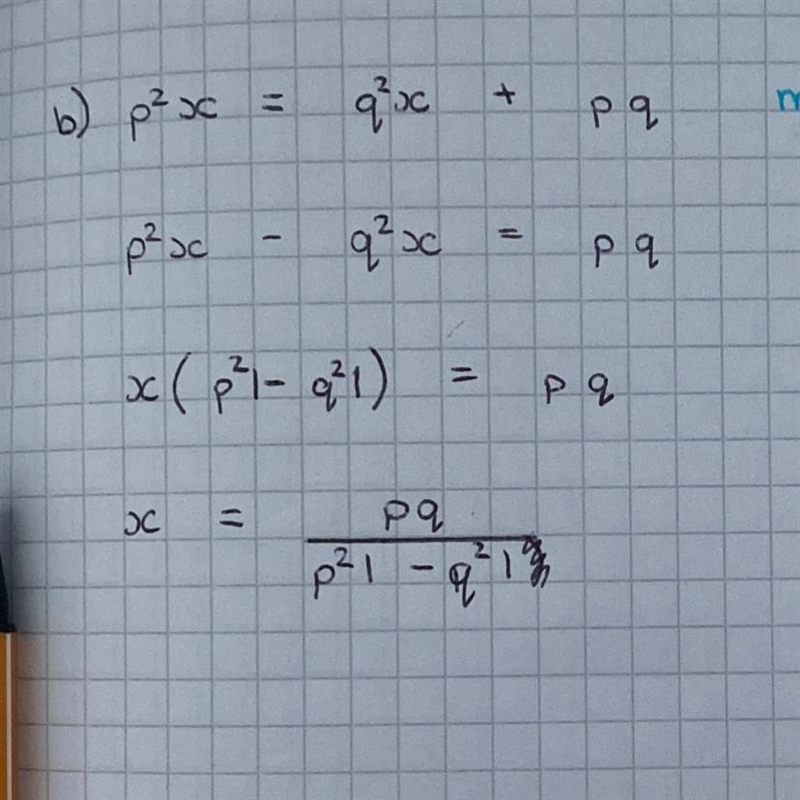 b) p²x = q²x + pq
p²x - q²x = pq
x(p²1 - q²1) = pq
x = pq / p²1 - q²1